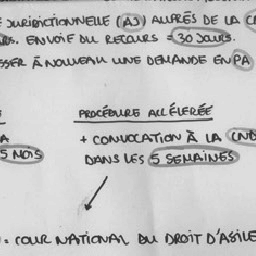 É JURIDICTIONNELLE (AJ) AUPRÈS DE LA C
RS. ENVOI DU RECOURS = 30 JOURS.
SSER À NOUVEAU UNE DEMANDE EN PA
PROCÉDURE ACCÉLERÉE
A + CONVOCATION À LA CND
5 MOIS DANS LES 5 SEMAINES
. COUR NATIONAL DU DROIT D'ASILE